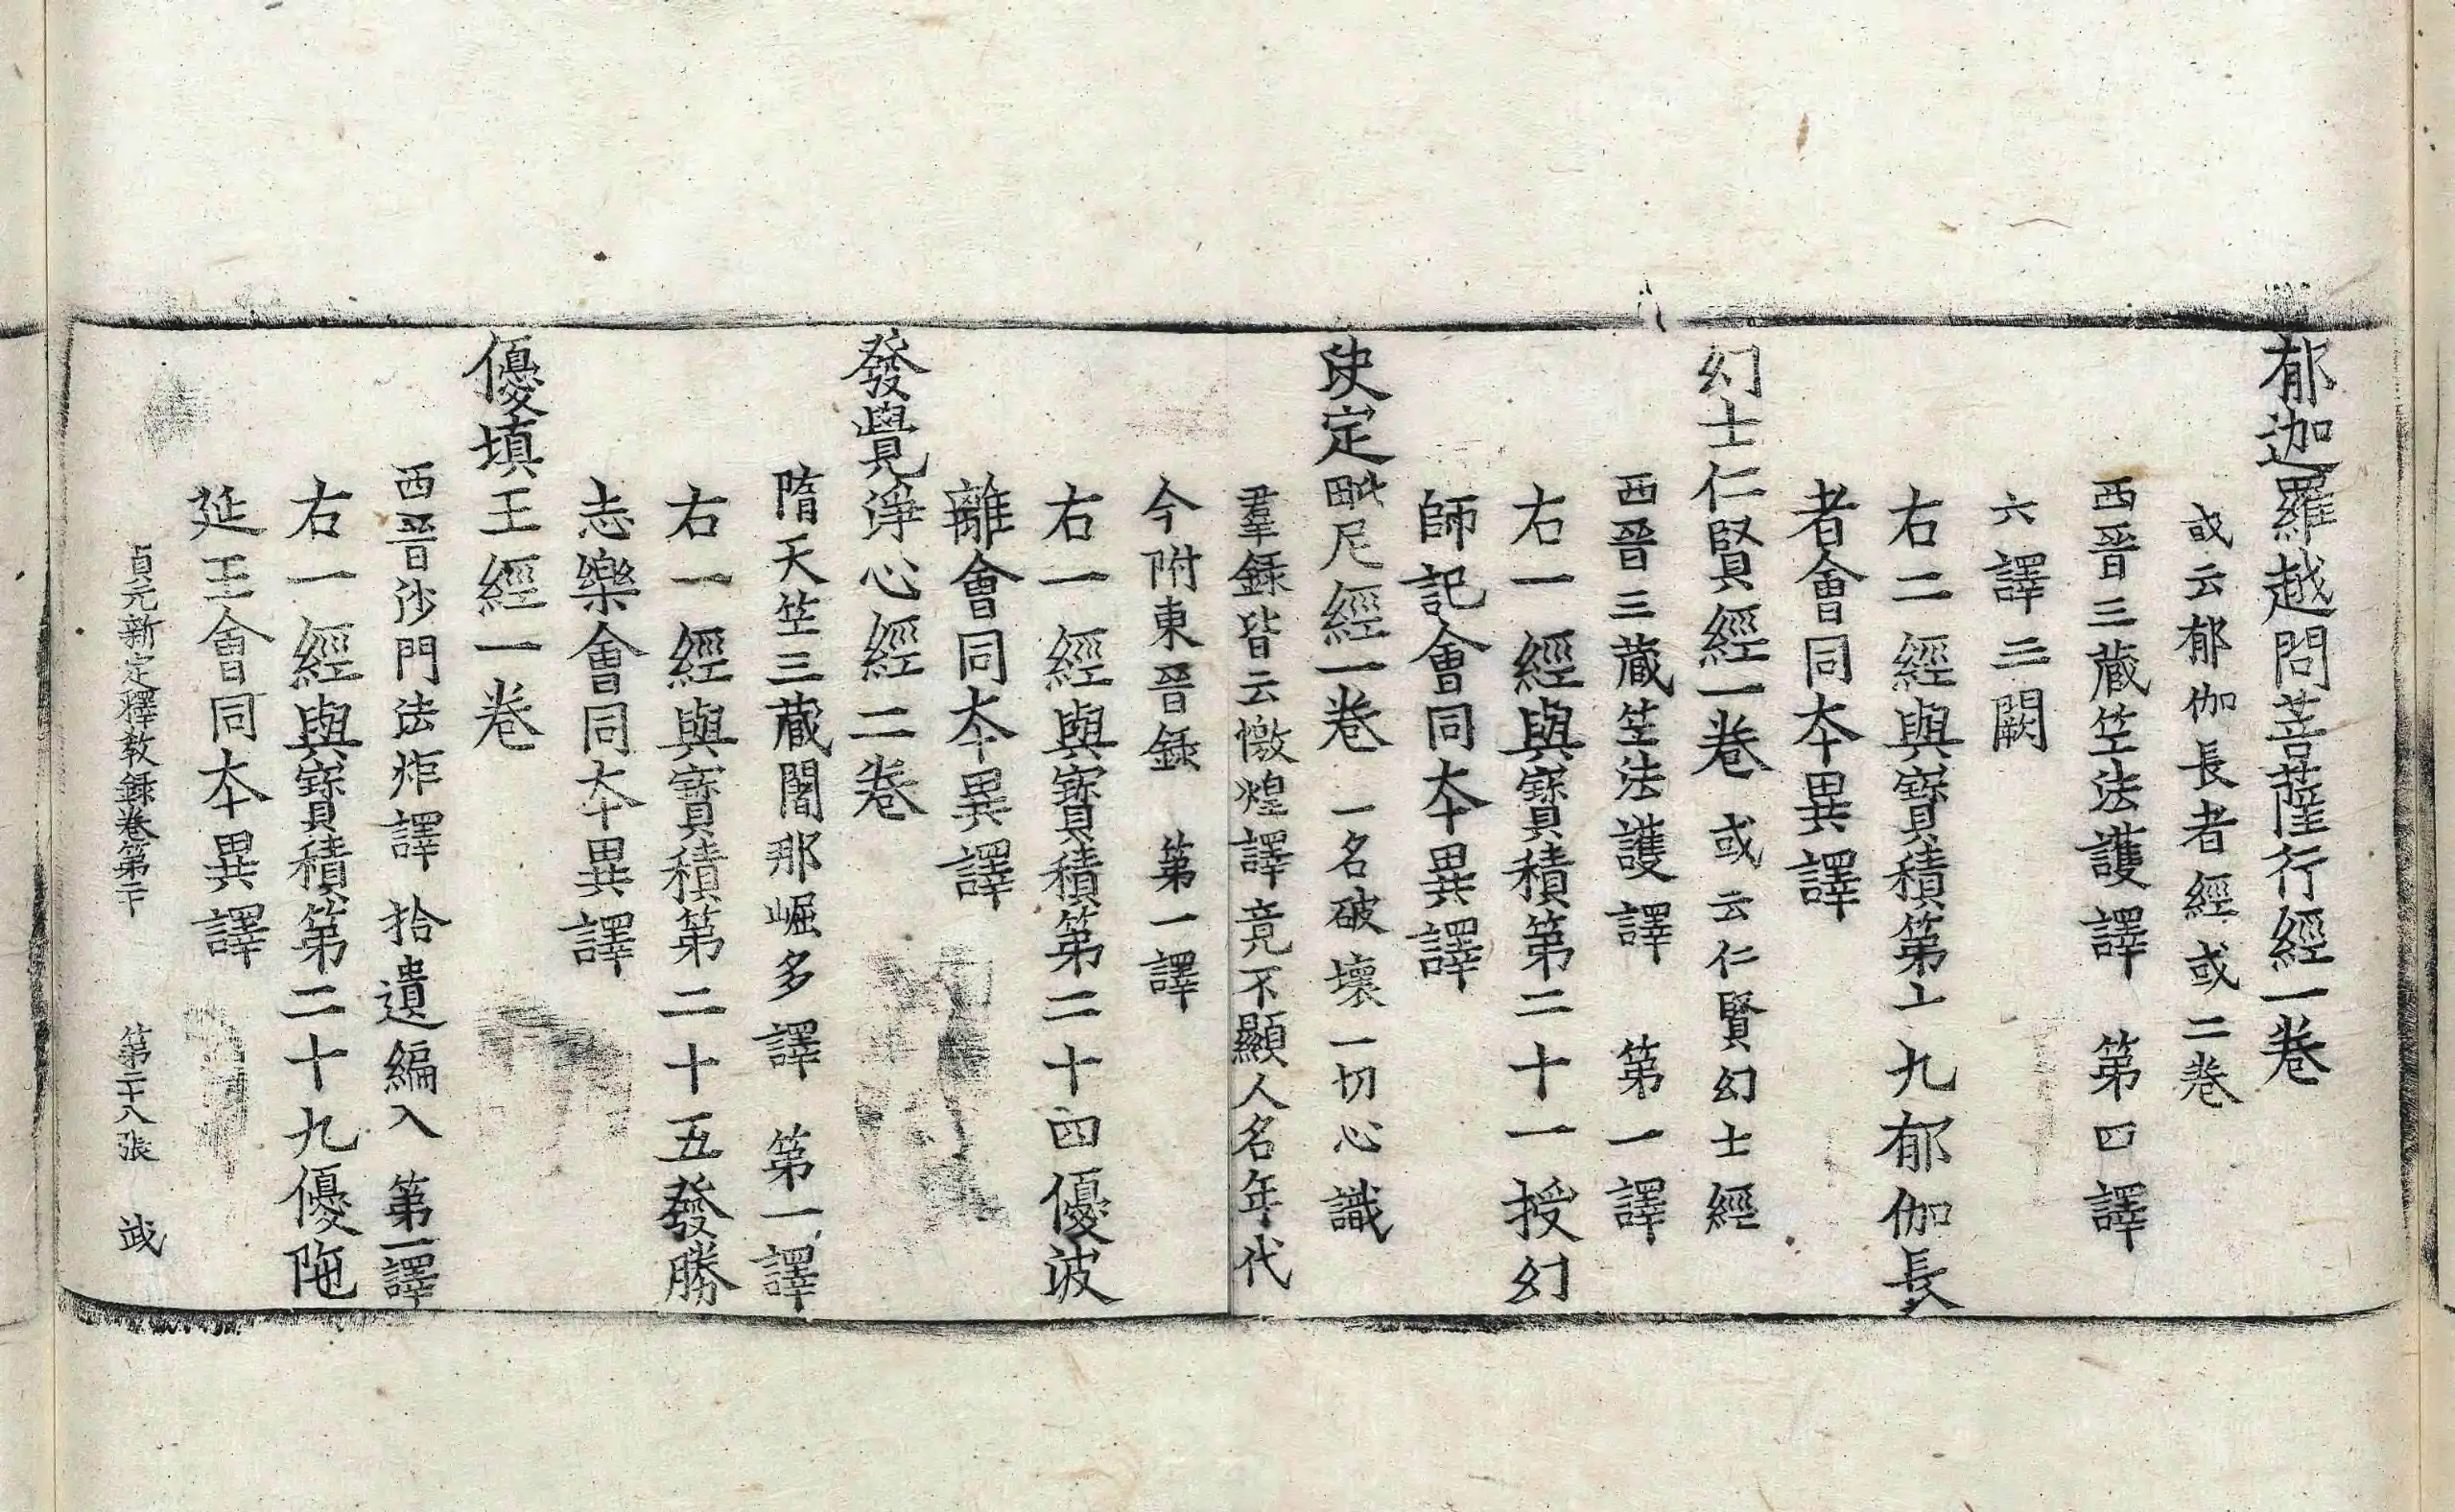 郁迦羅越問菩薩行經一卷
或云郁伽長者經或二卷
西晉三藏竺法護譯 第四譯
六譯三闕
右二經與寶積第十九郁伽長
者會同本異譯
幻士仁賢經一卷 或云仁賢幻士經
西晉三藏竺法護譯 第一譯
右一經與寶積第二十一授幻
師記會同本異譯
決定毗尼經一卷 一名破壞一切心識
羣錄皆云燉煌譯竟不顯人名年代
今附東晉錄 第一譯
右一經與寶積第二十四優波
離會同本異譯
發覺淨心經二卷
隋天竺三藏闍那崛多譯 第一譯
右一經與寶積第二十五發勝
志樂會同本異譯
優填王經一卷
西晉沙門法炬譯 拾遺編入 第一譯
右一經與寶積第二十九優陁
延王會同本異譯
貞元新定釋教錄卷第二十 第二十八張